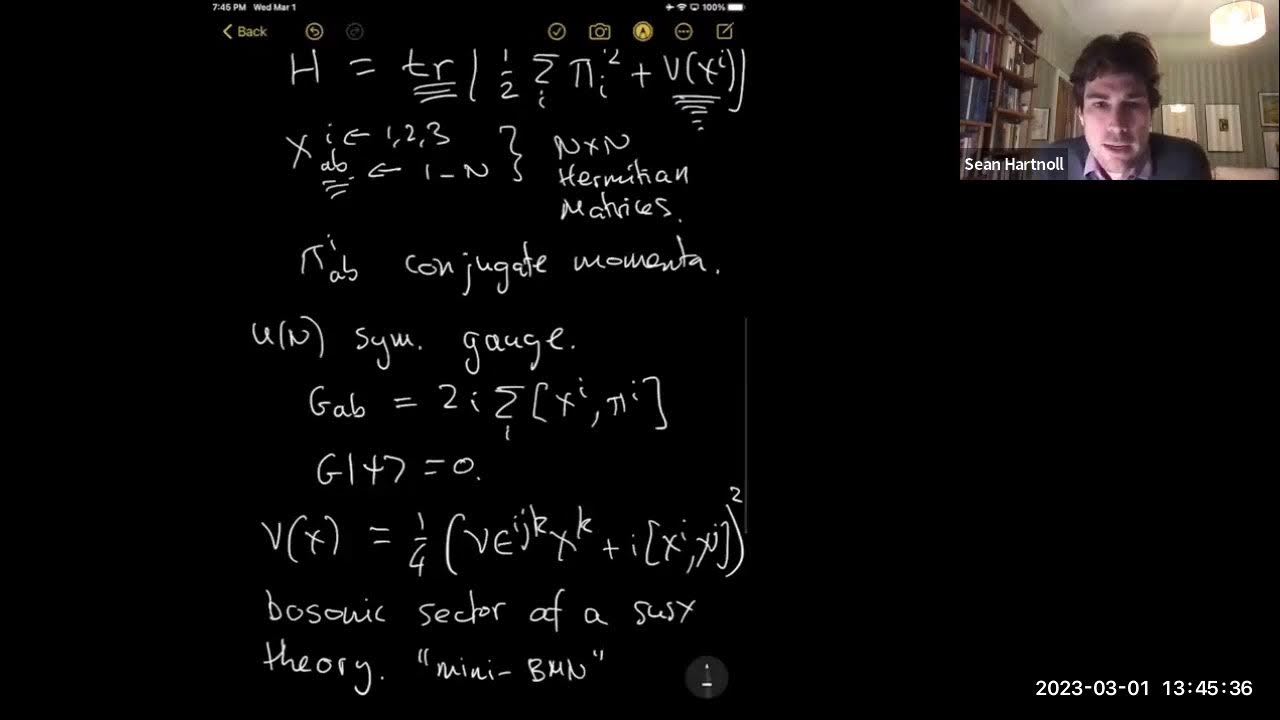 7:45 PM Wed Mar 1
100%
Back
H = tr [ 1/2 Σ_i π_i^2 + V(X^i) ]
X^i_ab i ← 1,2,3 } N×N
ab ← 1 – N } Hermitian
Matrices.
π^i_ab conjugate momenta.
U(N) sym. gauge.
G_ab = 2 i Σ_i [X^i, π^i]
G|ψ> = 0.
V(X) = 1/4 (ν ε^ijk X^k + i [X^i, X^j])^2
bosonic sector of a susy
theory. "mini-BMN"
Sean Hartnoll
2023-03-01 13:45:36